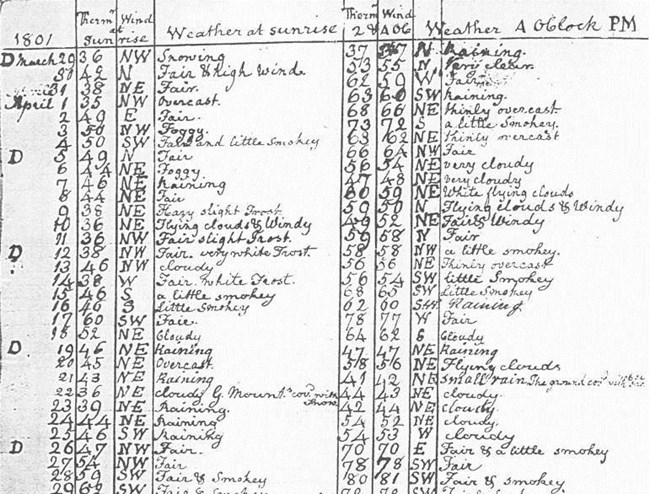 1801 Therm at Sunrise Wind at rise Weather at sunrise Therm 2 & Wind A OC Weather A OClock PM
D March 29 36 NW Snowing 37 N Raining.
42 N Fair & high Wind. 53 55 N Very clear.
31 38 NE Fair. 62 59 W Fair
April 1 35 NW Overcast. 63 60 SW Raining.
2 49 E Fair. 68 66 NE thinly overcast.
3 50 NW Foggy. 73 72 S a little Smokey.
4 50 SW Fair and little Smokey 63 62 NE thinly overcast
D 5 49 N Fair 66 64 NW Fair
6 44 NE Foggy. 56 54 NE very cloudy
7 46 NE Raining 47 48 NE very cloudy
8 44 NE Fair 60 59 NE White flying clouds
9 38 NE Hazy slight Frost. 59 50 N Flying clouds & Windy
10 36 NE Flying clouds & Windy 49 52 NE Fair & Windy
11 36 NW Fair slight Frost. 59 58 N Fair
D 12 38 NW Fair. very white Frost. 58 58 NW a little smokey.
13 46 NW cloudy 56 56 NE Thinly overcast
14 38 W Fair. White Frost. 56 54 SW little Smokey
15 46 S a little smokey 68 65 SW Little Smokey
16 40 S Little Smokey 62 60 SW Raining
17 60 SW Fair. 78 77 W Fair
18 52 NE Cloudy 64 62 S Cloudy
D 19 46 NE Raining 47 47 NE Raining
20 45 NE Overcast. 58 56 NE Flying clouds
21 43 NE Raining 41 42 NE small rain The ground cov.d with
22 36 NE cloudy G. Mount.n cov.d with Snow 44 43 NE cloudy.
23 39 NE Raining. 42 44 NE cloudy.
24 44 NE Raining 54 52 NE cloudy.
25 46 SW Raining 54 53 W cloudy
D 26 47 NW Fair. 70 70 E Fair & a little smokey
27 54 NW Fair 78 78 SW Fair
28 59 SW Fair & Smokey 80 81 SW Fair & smokey
29 62 SW Fair & Smokey SW